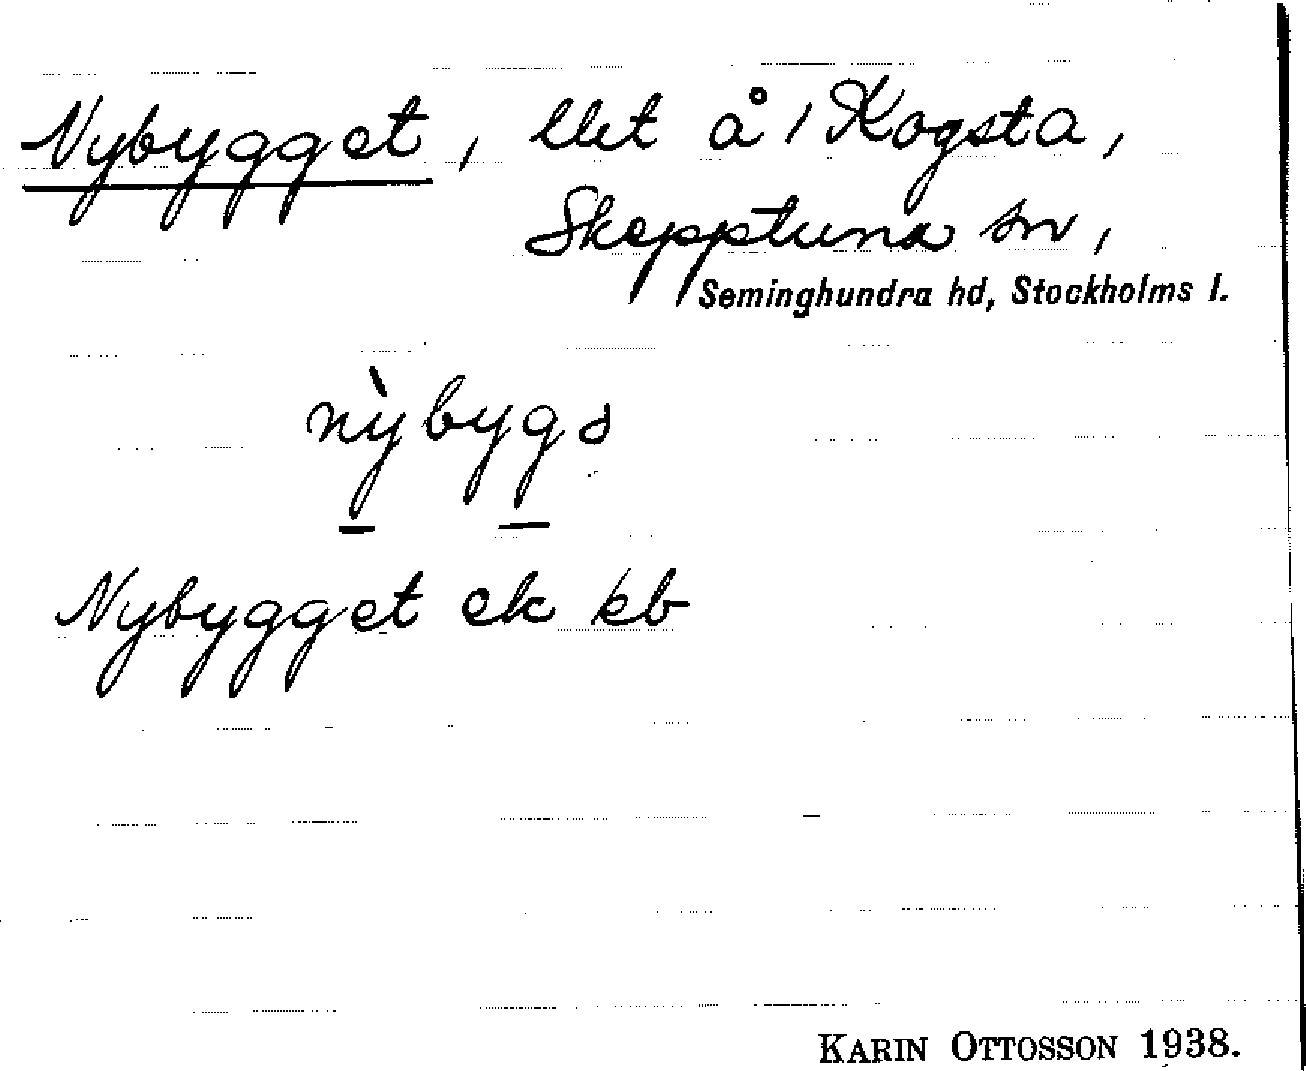 Nybygget, llet å 1 Kogsta,
Skepptuna sn,
Seminghundra hd, Stockholms l.
nỳbygə
Nybygget ek kb
KARIN OTTOSSON 1938.